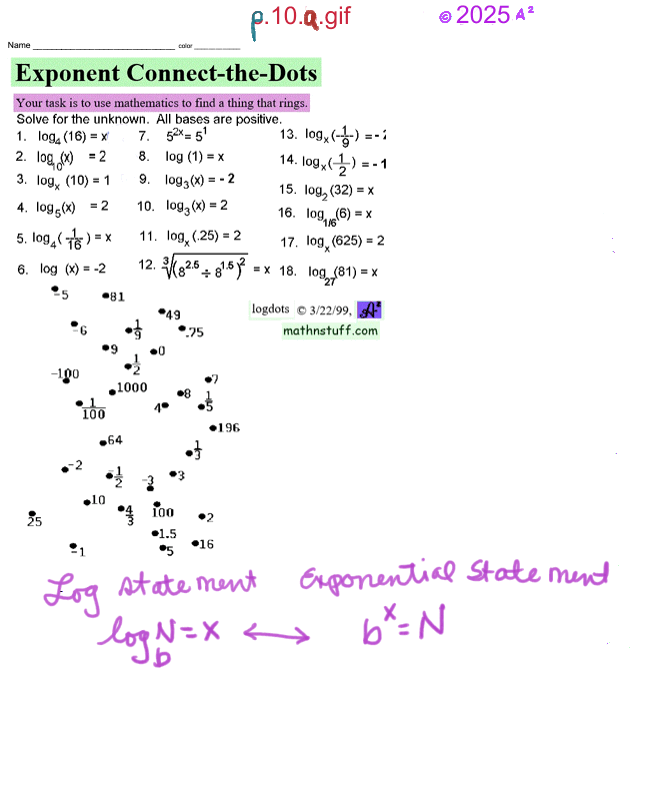 p.10.a.gif
© 2025 A²
Name ________________________________ color ___________
Exponent Connect-the-Dots
Your task is to use mathematics to find a thing that rings.
Solve for the unknown. All bases are positive.
1. log₄ (16) = x
2. log₁₀(x) = 2
3. logₓ (10) = 1
4. log₅(x) = 2
5. log₄( 1/16 ) = x
6. log (x) = -2
7. 5^2x = 5^1
8. log (1) = x
9. log₃(x) = - 2
10. log₃(x) = 2
11. logₓ (.25) = 2
12. ∛(8^2.5 ÷ 8^1.5)^2 = x
13. logₓ(1/9) = -
14. logₓ(1/2) = -1
15. log₂ (32) = x
16. log₁/₆ (6) = x
17. logₓ (625) = 2
18. log₂₇(81) = x
logdots © 3/22/99, A²
mathnstuff.com
-5
81
49
-6
1/9
.75
9
0
1/2
-100
7
1000
8
1/100
4
1/5
196
64
1/3
-2
-1/2
-3
3
10
4/3
100
25
2
1.5
-1
5
16
Log statement Exponential Statement
log_b N = x ⟷ b^x = N